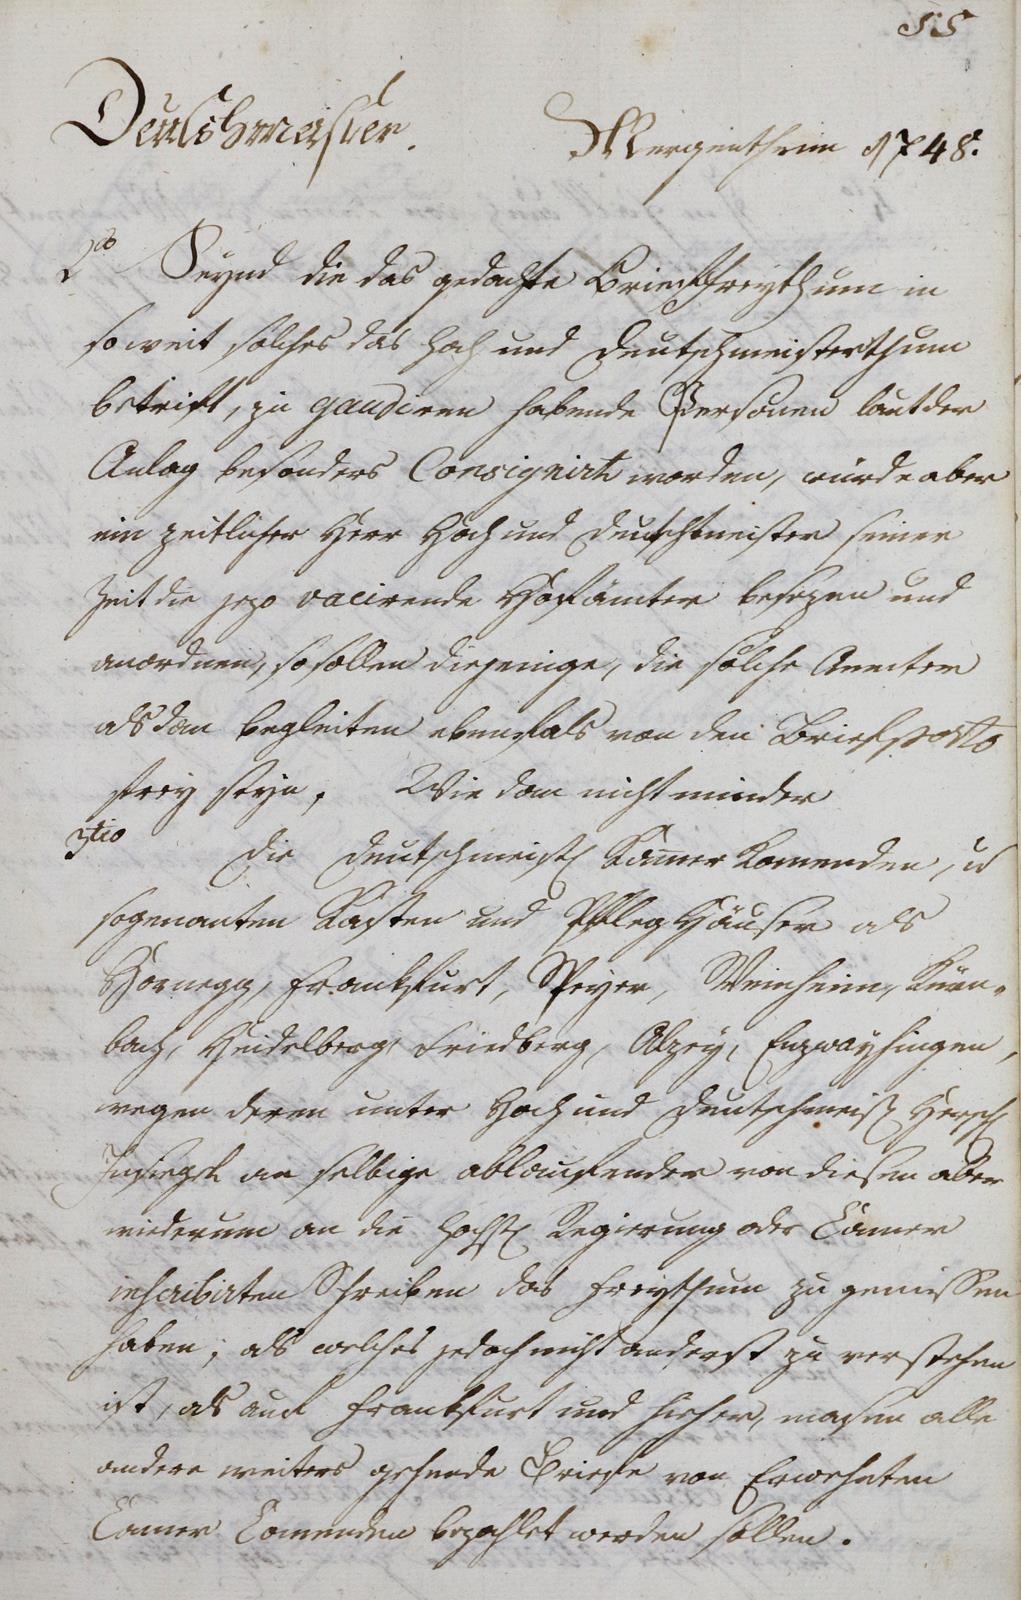 55
Deutschmeister.
Mergentheim 1748.
2do Seynd die das gedachte Brieffreythum in
soweit solches das Hoch und Deutschmeisterthum
betrift, zu gaudiren habende Personen laut der
Anlag besonders Consignirt worden, würde aber
ein zeitlicher Herr Hoch und Deutschmeister seiner
Zeit die jezo vacirende Hofämter besezen und
anordnen, so sollen diejenige, die solche Aemter
alsdan begleiten ebenfals von den Briefporto
frey seyn. Wie dan nicht minder
3tio die Deutschmeist. Kammer Komenden, u
sogenanten Kasten und Pfleg Häuser als
Hornegg, Franckfurt, Speyer, Weinheim, Kürn-
bach, Heidelberg, Friedberg, Alzey, Enzwayhingen,
wegen deren unter Hoch und Deutschmeist. Herrsch.
Insiegel an selbige ablaufender von diesen aber
wiederum an die Hochfst. Regierung oder Camer
inscribirten Schreiben das Freythum zu geniessen
haben; als welches jedoch nicht anderst zu verstehen
ist, als auf Franckfurt und hieher, masen alle
andere weiters gehende Briefe von Erwehnten
Camer Comenden bezahlet werden sollen.